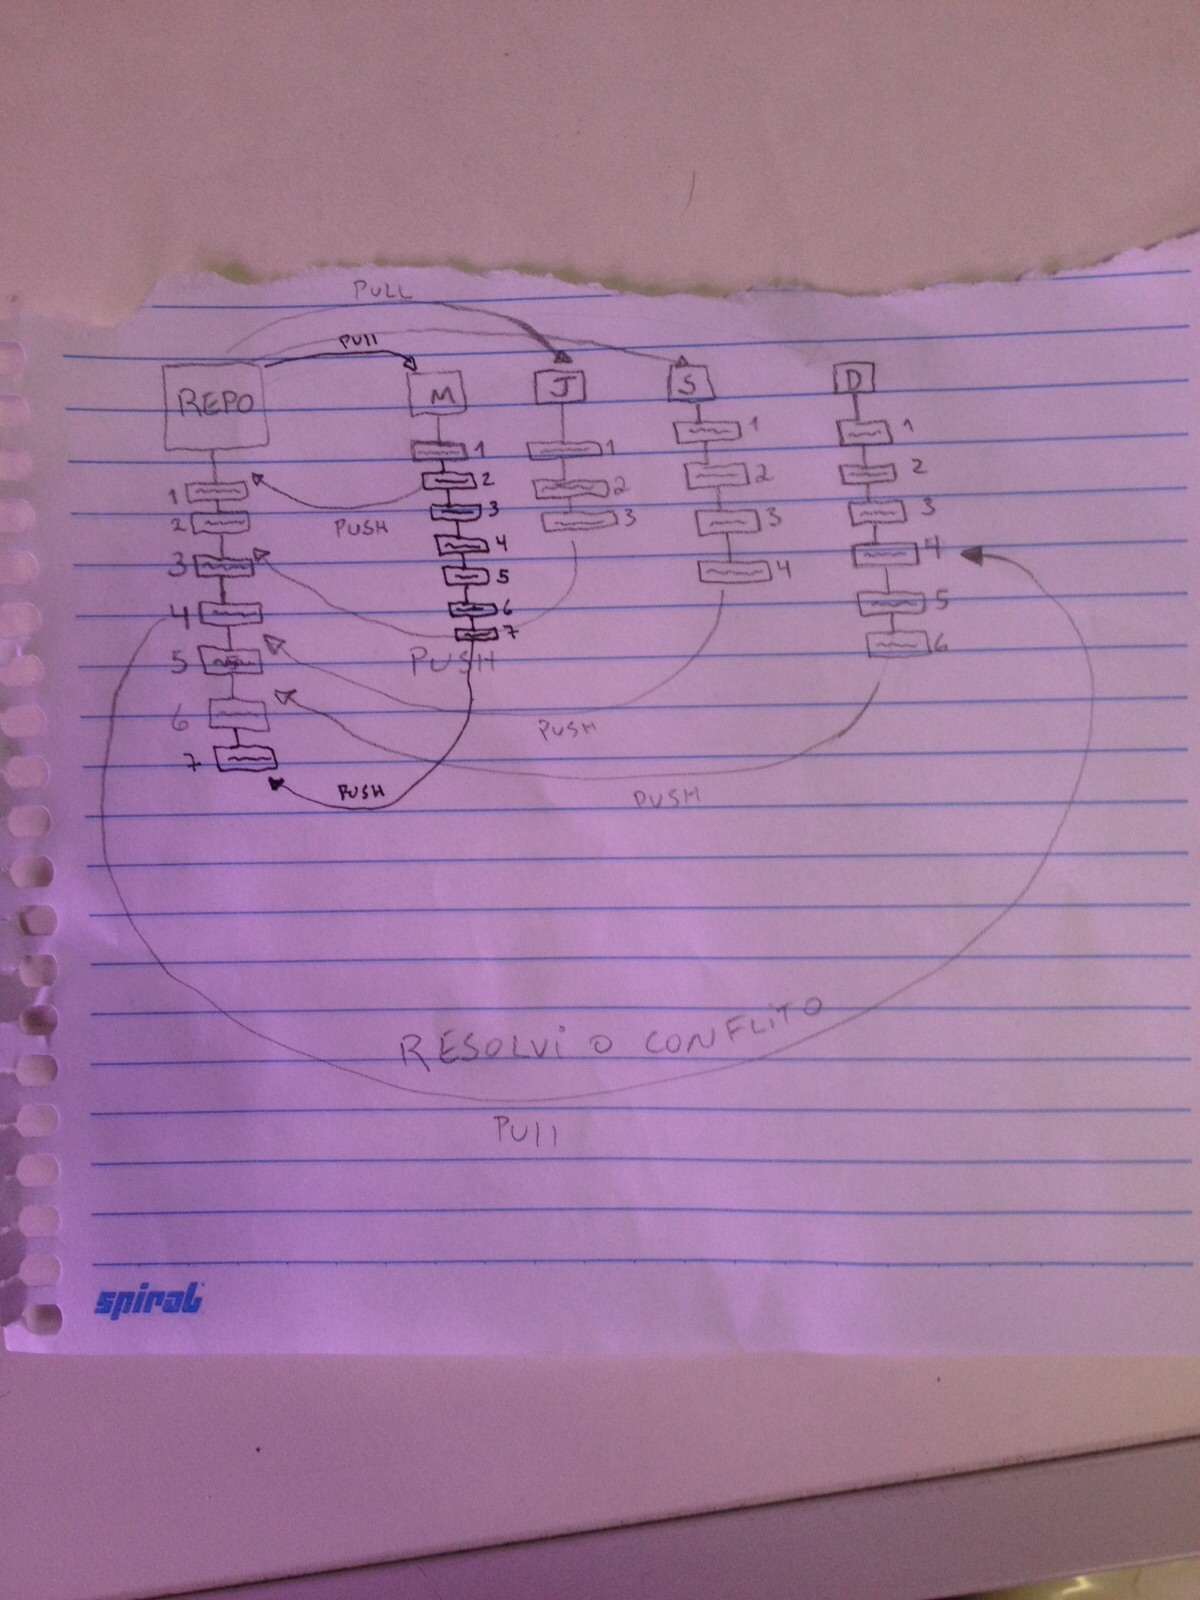 PULL
PUll
REPO
M
J
S
D
1
2
3
4
5
6
7
1
2
3
4
5
6
7
1
2
3
1
2
3
4
1
2
3
4
5
6
PUSH
PUSH
PUSH
PUSH
PUSH
RESOLVi O CONFLiTO
PUll
spiral